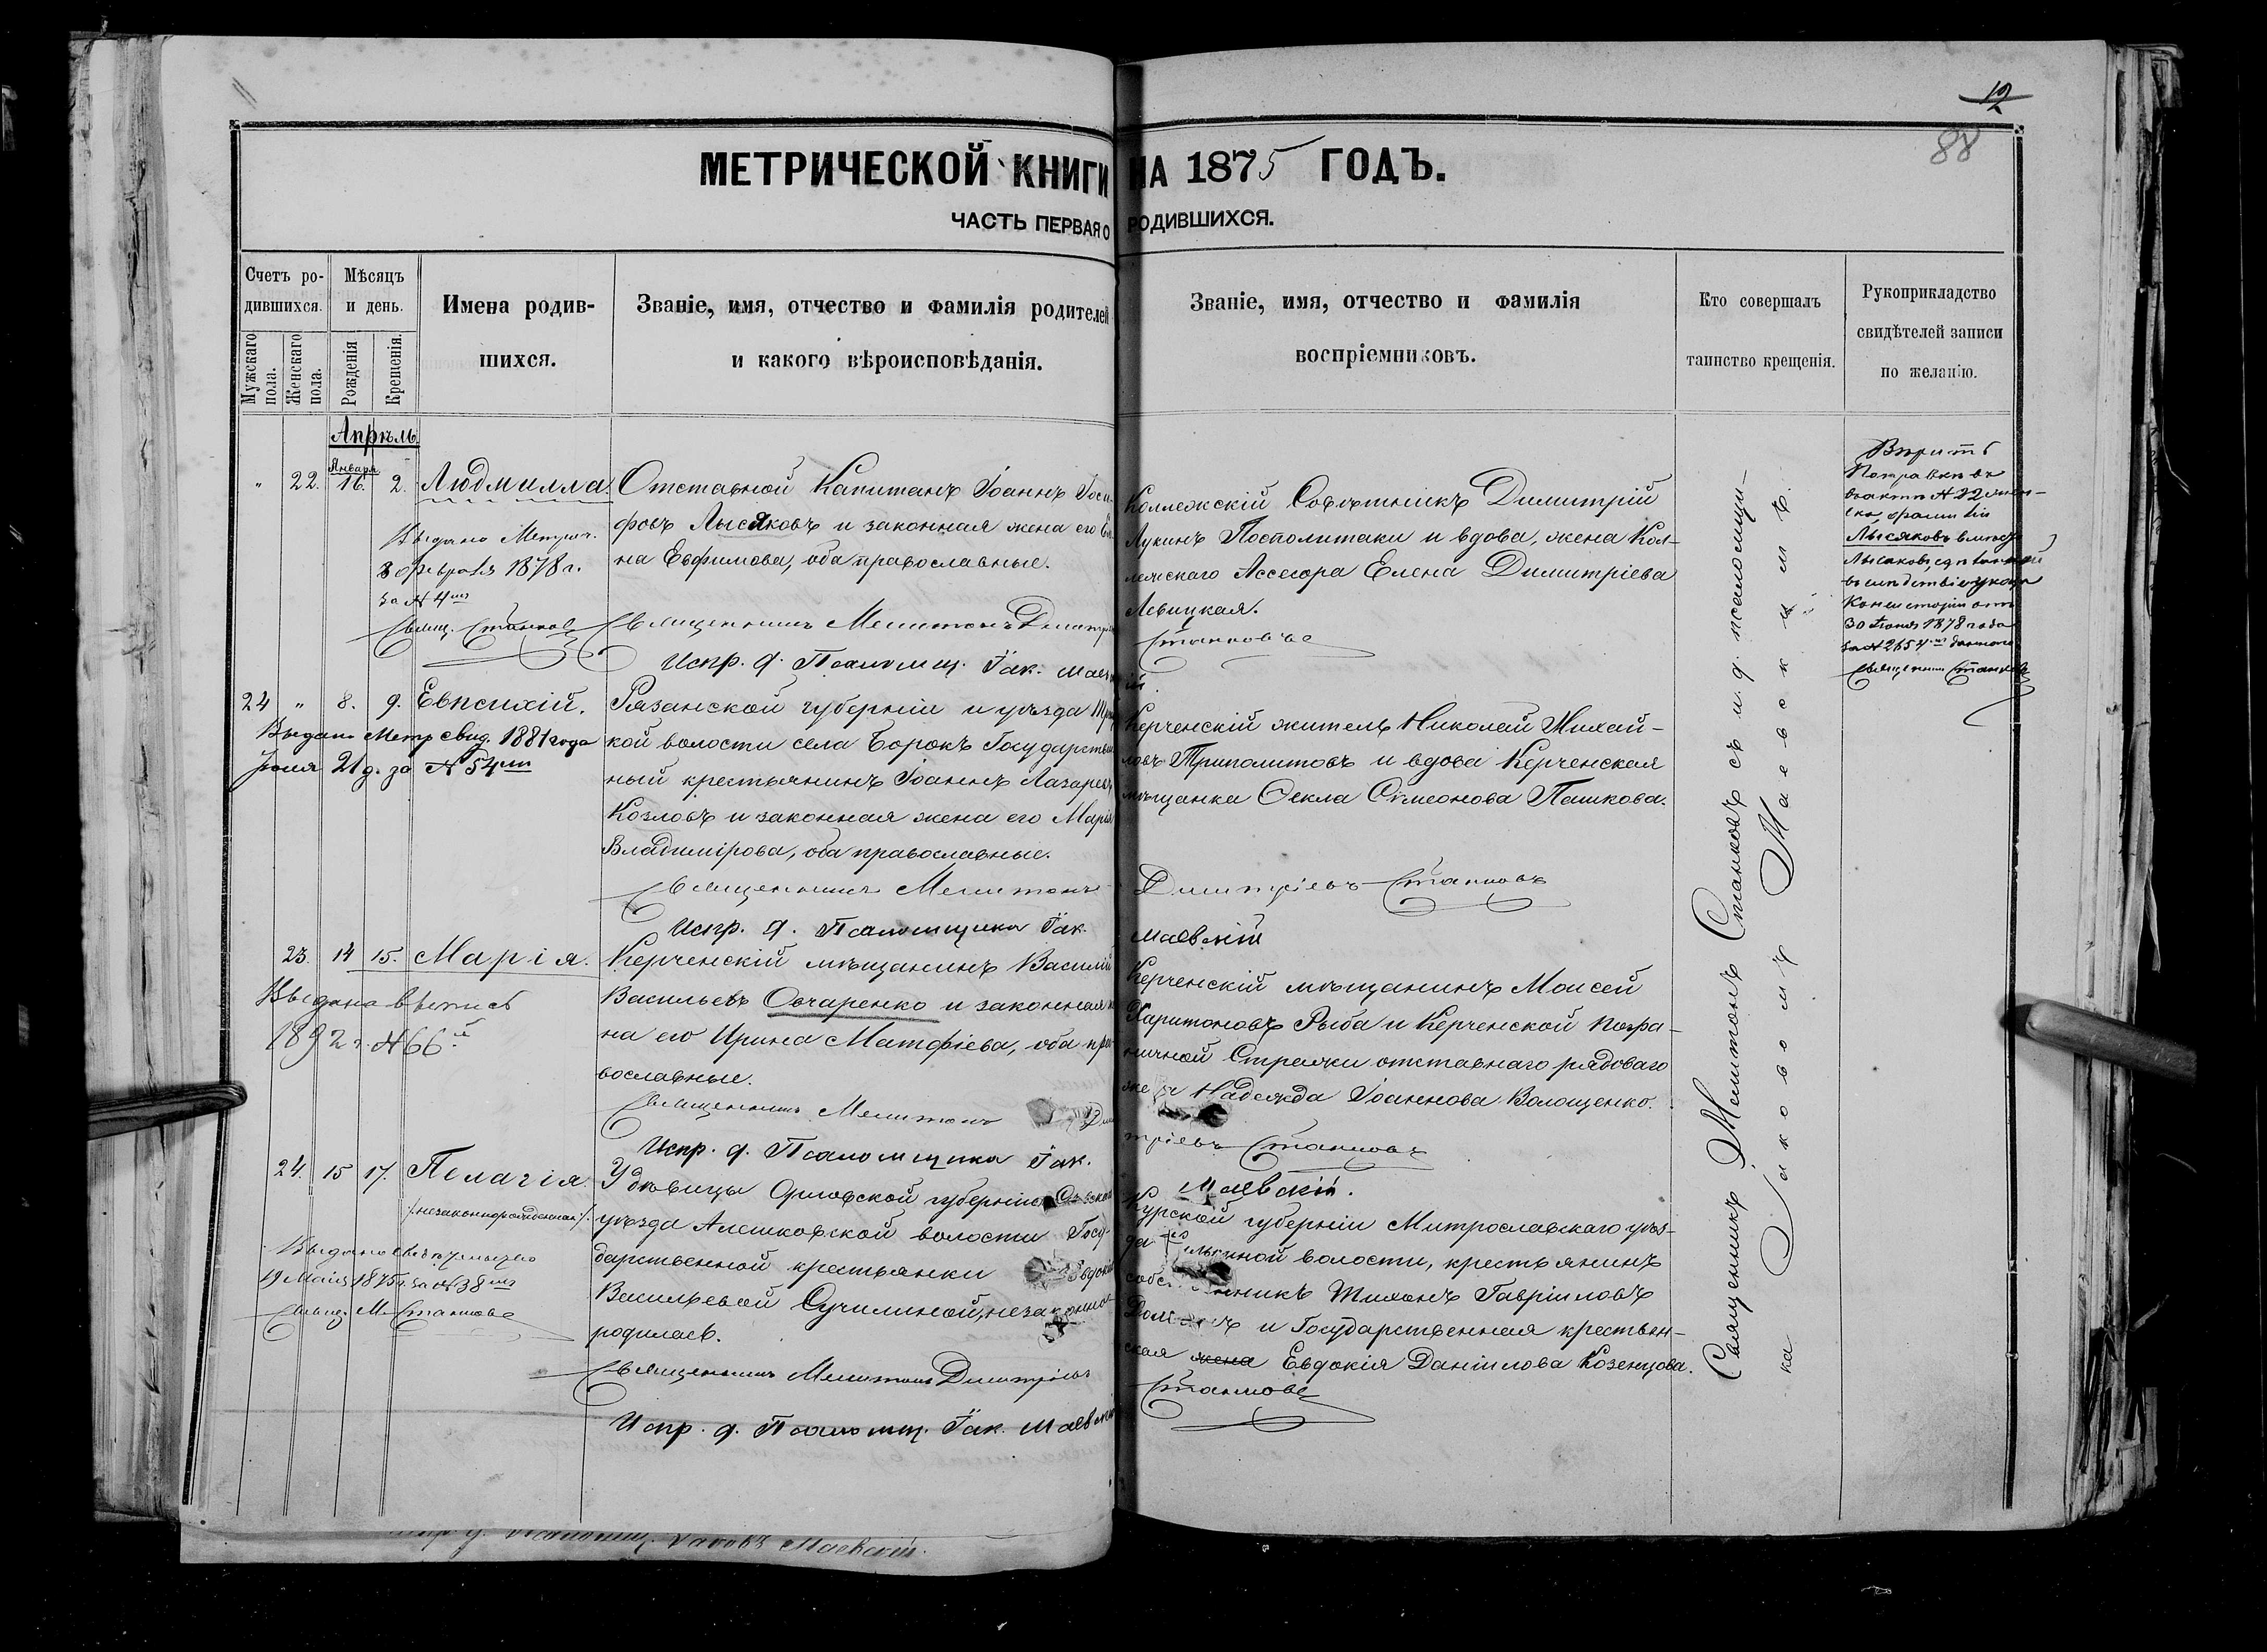 12
88
МЕТРИЧЕСКОЙ КНИГИ НА 1875 ГОДЪ.
ЧАСТЬ ПЕРВАЯ О РОДИВШИХСЯ.
Счетъ ро-
дившихся.
Мужскаго пола.
Женскаго пола.
Мѣсяцъ
и день.
Рожденія
Крещенія.
Имена родив-
шихся.
Званіе, имя, отчество и фамилія родителей
и какого вѣроисповѣданія.
Званіе, имя, отчество и фамилія
воспріемниковъ.
Кто совершалъ
таинство крещенія.
Рукоприкладство
свидѣтелей записи
по желанію.
Апрѣль
Января
" 22. 16. 2. Людмилла.
Выдано Метрич.
8 февраля 1878 г.
за № 4
Свящ. Станковъ
Отставной Капитанъ Іоаннъ Іоси-
фовъ Лысяковъ и законная жена его
на Евфимова, оба православные.
Священникъ Мелитонъ
Испр. д. Псаломщ. Іак.
Коллежскій Совѣтникъ Димитрій
Лукинъ Посполитаки и вдова, жена Кол-
лежскаго Ассесора Елена Димитріева
Левицкая.
Станковъ
Вѣритъ
№ 22
Лысяковъ
30 1878 года
за № 2654
24 " 8. 9. Евпсихій.
Выдано Метр Свид. 1881 года
Іюля 21 д. за № 54
Рязанской губерніи и уѣзда
кой волости села Борокъ Государствен
ный крестьянинъ Іоаннъ Лазаревъ
Козловъ и законная жена его Марія
Владимірова, оба православные.
Священникъ Мелитонъ
Испр. д. Псаломщика Іак.
Керченскій житель Николай Михай-
ловъ Триполитовъ и вдова Керченская
мѣщанка Ѳекла Симеонова Пашкова.
Димитріевъ Станковъ
Маевскій
23. 14 15. Марія.
Выдана выпись
1892 г. № 66
Керченскій мѣщанинъ Василій
Васильевъ Овчаренко и законная
на его Ирина Матѳіева, оба пра
вославные.
Священникъ Мелитонъ
Испр. д. Псаломщика Іак.
Керченскій мѣщанинъ Моисей
Харитоновъ Рыба и Керченской Погра-
ничной Стражи отставнаго рядоваго
Надежда Іоаннова Волощенко.
тріевъ Станковъ
Маевскій.
24. 15 17. Пелагія.
/незаконнорожденная/.
19 Мая 1875 г. за № 38
Свящ. М. Станковъ
У вдовицы Орловской губерніи
уѣзда Алешковской волости Госу-
дарственной крестьянки Евдокіи
Васильевой Сучилиной, незаконно-
родилась.
Священникъ Мелитонъ Димитріевъ
Испр. д. Псаломщ. Іак. Маевскій
Курской губерніи Митрославскаго уѣз-
да волости, крестьянинъ
Тихонъ Гавріиловъ
и Государственная крестьян-
ская жена Евдокія Даніилова Козенцова.
Станковъ
Священникъ Мелитонъ Станковъ съ и. д. псаломщи-
ка Іаковомъ Маевскимъ.
Псаломщ. Іаковъ Маевскій.